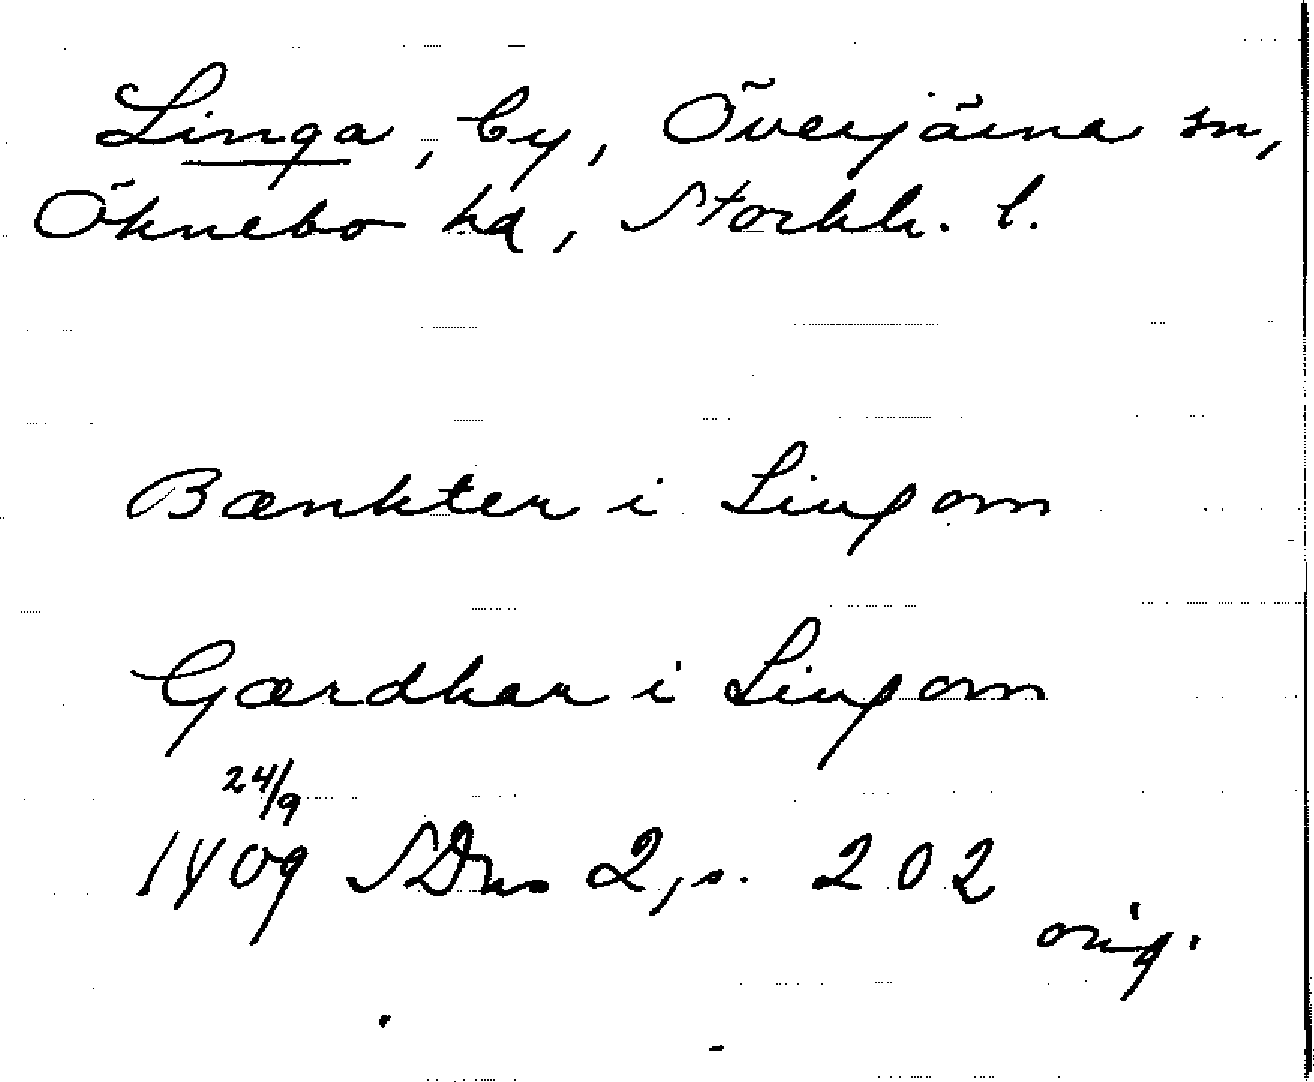 Linga, by, Överjärna sn,
Öknebo hd, Stockh. l.
Bænkter i Lingom
Gærdhar i Lingom
24/9
1409 SDns 2, s. 202
orig.